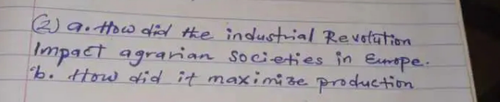 (2) a. How did the industrial Revolution
Impact agrarian societies in Europe.
b. How did it maximize production